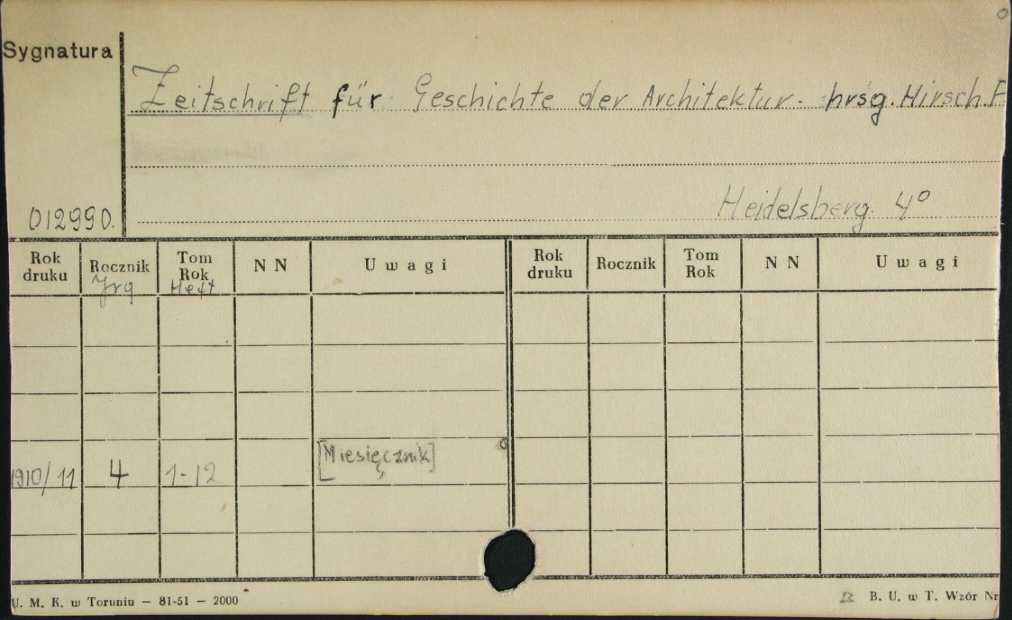 Sygnatura
Zeitschrift für Geschichte der Architektur. hrsg. Hirsch. F
Heidelsberg. 4º
012990.
Rok druku Rocznik Tom Rok N N Uwagi Rok druku Rocznik Tom Rok N N Uwagi
Jrg Heft
1910/11 4 1-12 [Miesięcznik]
U. M. K. w Toruniu — 81-51 — 2000
B. U. w T. Wzór Nr